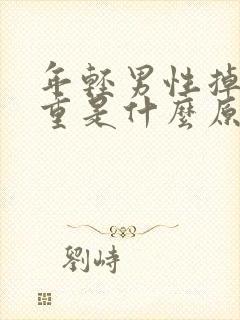 年輕男性掉
重是什麼原
劉峙